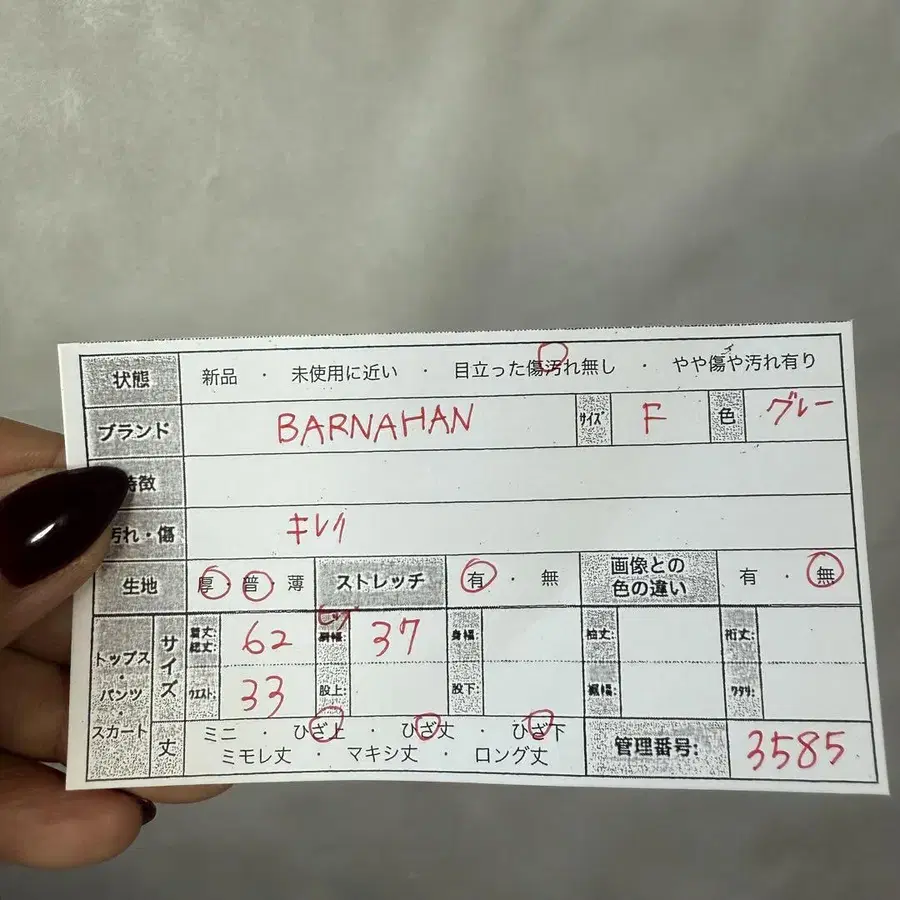 状態 新品 ・ 未使用に近い ・ 目立った傷汚れ無し ・ やや傷や汚れ有り
ブランド BARNAHAN サイズ F 色 グレー
特徴
汚れ・傷 キレイ
生地 厚 普 薄 ストレッチ 有 ・ 無 画像との色の違い 有 ・ 無
トップス・パンツ・スカート サイズ 着丈: 総丈: 62 ヒップ 37 身幅: 袖丈: 裄丈:
ウエスト: 33 股上: 股下: 裾幅: ワタリ:
丈 ミニ ・ ひざ上 ・ ひざ丈 ・ ひざ下
ミモレ丈 ・ マキシ丈 ・ ロング丈
管理番号: 3585